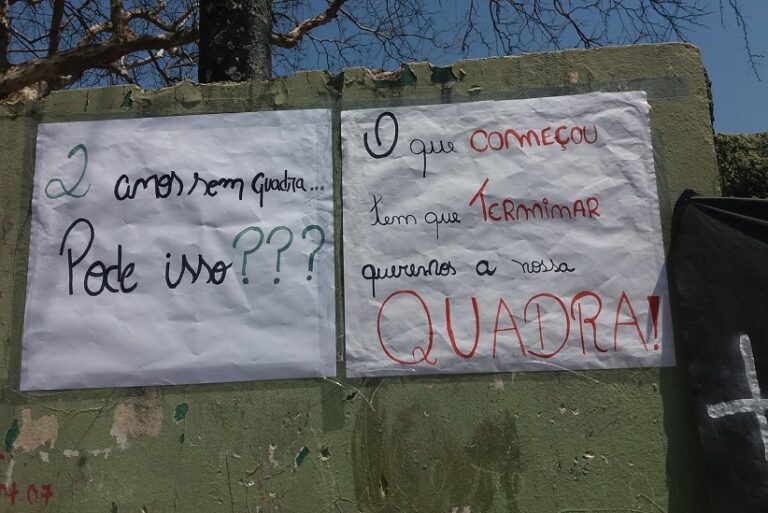 2 anos sem quadra...
Pode isso???
O que COMEÇOU
tem que TERMINAR
queremos a nossa
QUADRA!
07